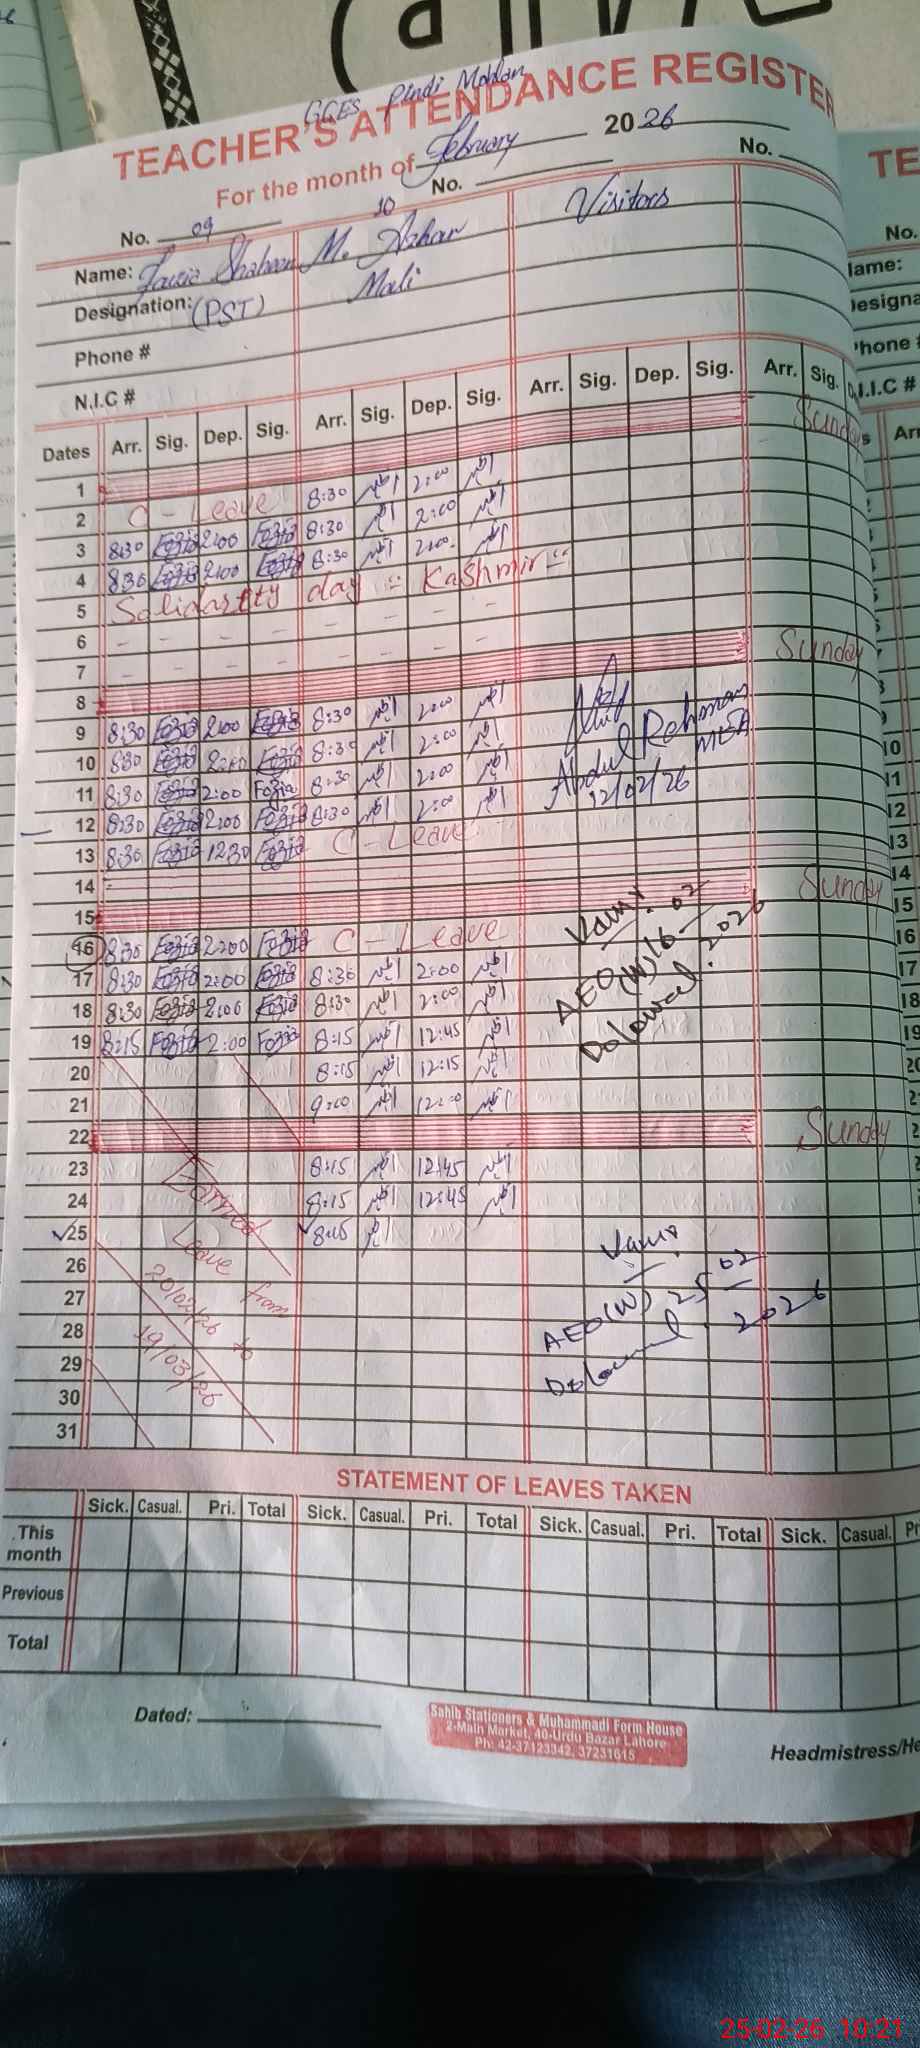 GGES Pindi Mohlan
TEACHER'S ATTENDANCE REGISTER
For the month of February 2026
No. 09 No. 10 No.
Name: Fauzia Shaheen M. Azhar Visitors
Designation: (PST) Mali
Phone #
N.I.C #
Dates Arr. Sig. Dep. Sig. Arr. Sig. Dep. Sig. Arr. Sig. Dep. Sig. Arr. Sig.
1 Sunday
2 C - Leave 8:30 2:00
3 8:30 Fozia 2:00 Fozia 8:30 2:00
4 8:30 Fozia 2:00 Fozia 8:30 2:00
5 Solidarity day = Kashmir =
6 - - - - - - - -
7 - - - - - - - -
8 Sunday
9 8:30 Fozia 2:00 Fozia 8:30 2:00
10 8:30 Fozia 2:00 Fozia 8:30 2:00
11 8:30 Fozia 2:00 Fozia 8:30 2:00
12 8:30 Fozia 2:00 Fozia 8:30 2:00
13 8:30 Fozia 12:30 Fozia C - Leave
Abdul Rehman
MEA
12/02/26
14
15 Sunday
16 8:30 Fozia 2:00 Fozia C - Leave
17 8:30 Fozia 2:00 Fozia 8:30 2:00
18 8:30 Fozia 2:00 Fozia 8:30 2:00
19 8:15 Fozia 2:00 Fozia 8:15 12:45
AEO (W) 16-02-2026
20 8:15 12:15
21 9:00 12:00
22 Sunday
23 8:15 12:45
24 8:15 12:45
25 8:15
26
27
28
29
30
31
Earned
Leave from
20/02/26 to
19/03/26
AEO (W) 25-02-2026
STATEMENT OF LEAVES TAKEN
Sick. Casual. Pri. Total Sick. Casual. Pri. Total Sick. Casual. Pri. Total Sick. Casual. Pr
This month
Previous
Total
Dated:
Sahib Stationers & Muhammadi Form House
2-Main Market, 40-Urdu Bazar Lahore
Ph: 42-37123342, 37231615
Headmistress/He
25-02-26 10:21